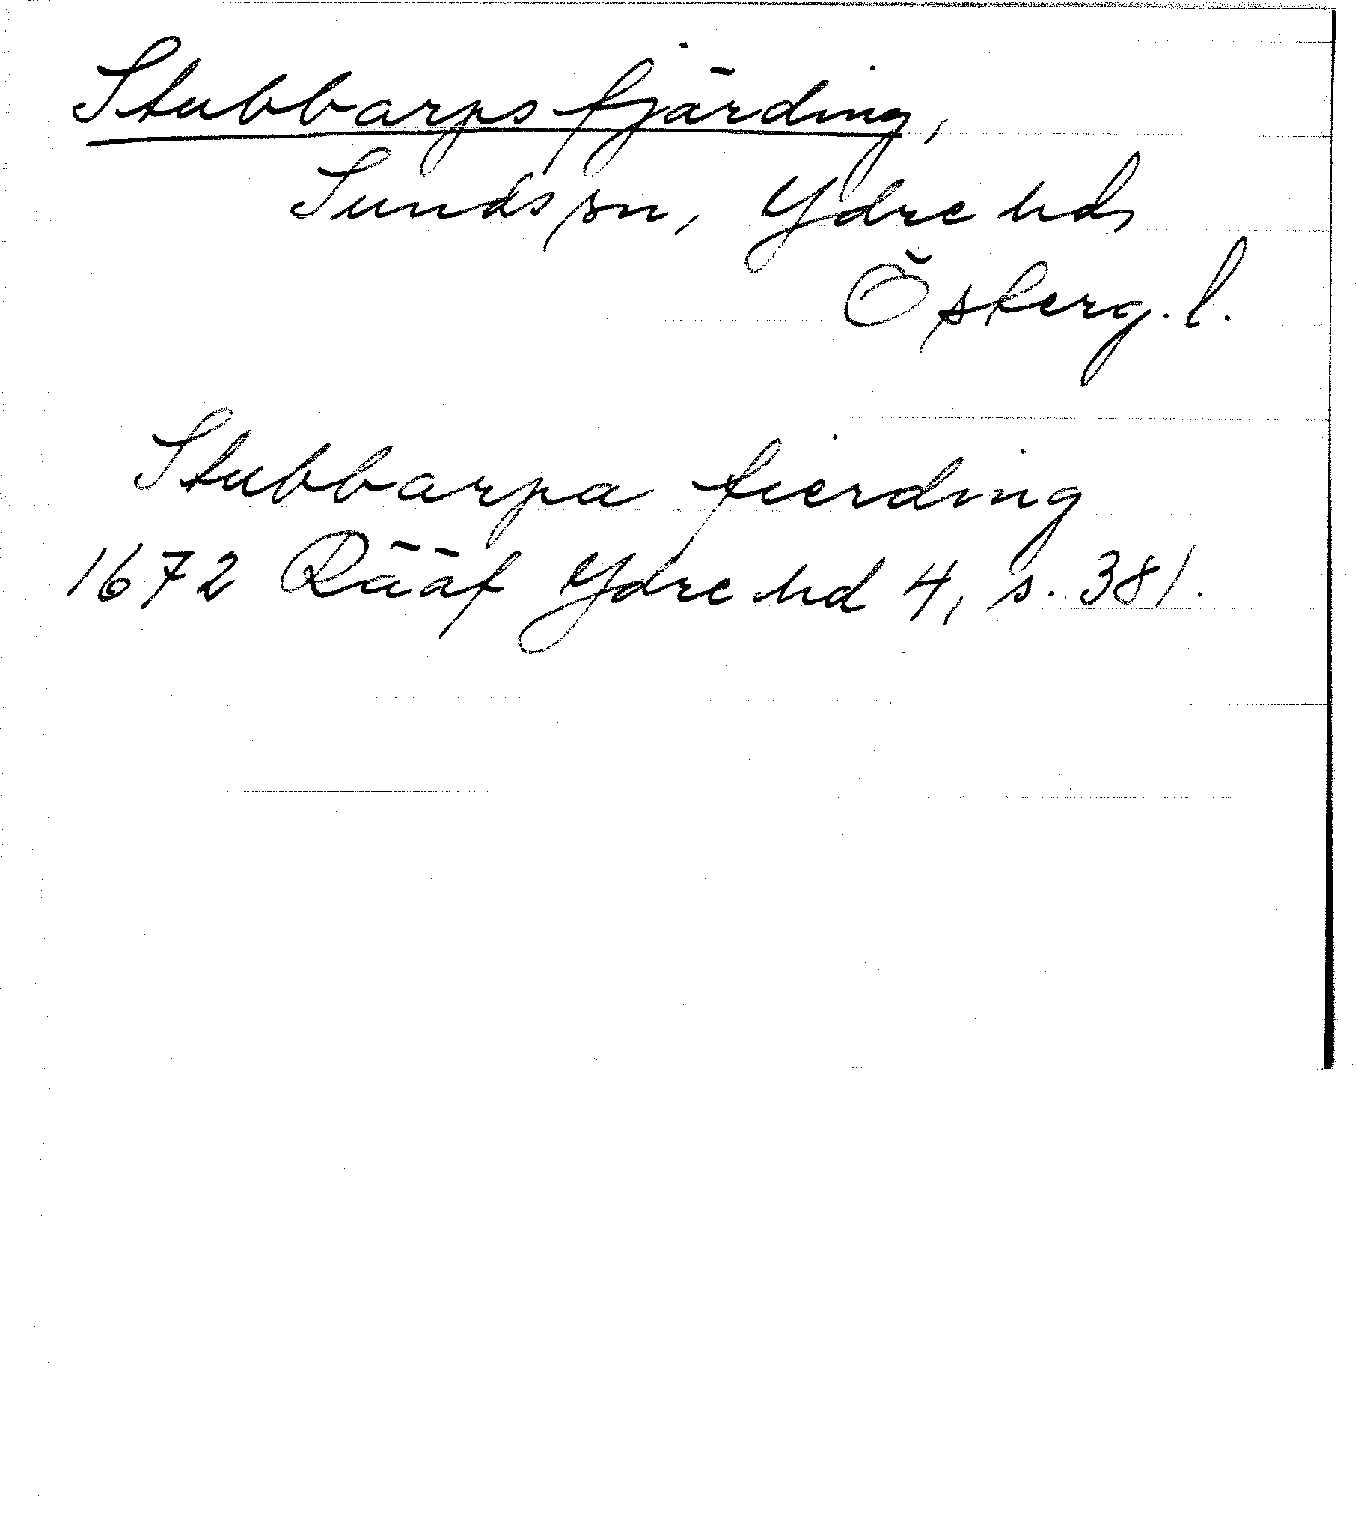 Stubbarps fjärding,
Sunds sn, Ydre hd,
Österg. l.
Stubbarpa fierding
1672 Rääf Ydre hd 4, s. 381.